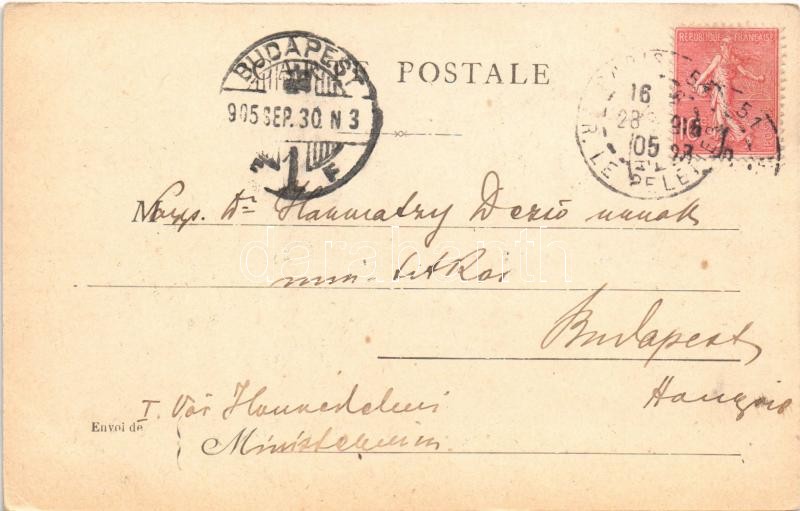 BUDAPEST
905 SEP. 30. N 3
CARTE POSTALE
REPUBLIQUE FRANÇAISE
PARIS
16
28
05
10
M Nagys. Dr Dezső urnak
min. titkár
Budapest
Hongrie
I. Vár Honvédelmi
Envoi de
Ministerium
darabanth